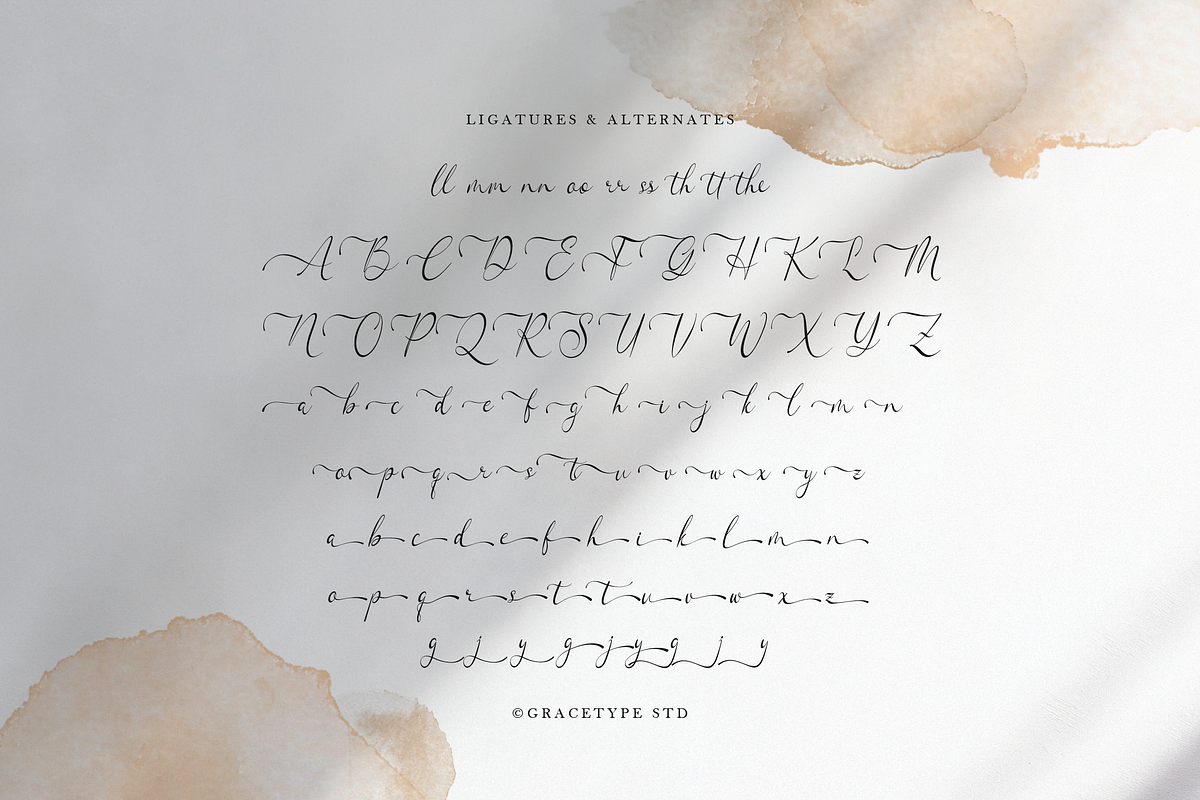 LIGATURES & ALTERNATES
ll mm nn oo rr ss th tt the
A B C D E F G H K L M
N O P Q R S U V W X Y Z
a b c d e f g h i j k l m n
o p q r s t u v w x y z
a b c d e f h i k l m n
o p q r s t t u v w x z
g j y g j y g j y
©GRACETYPE STD